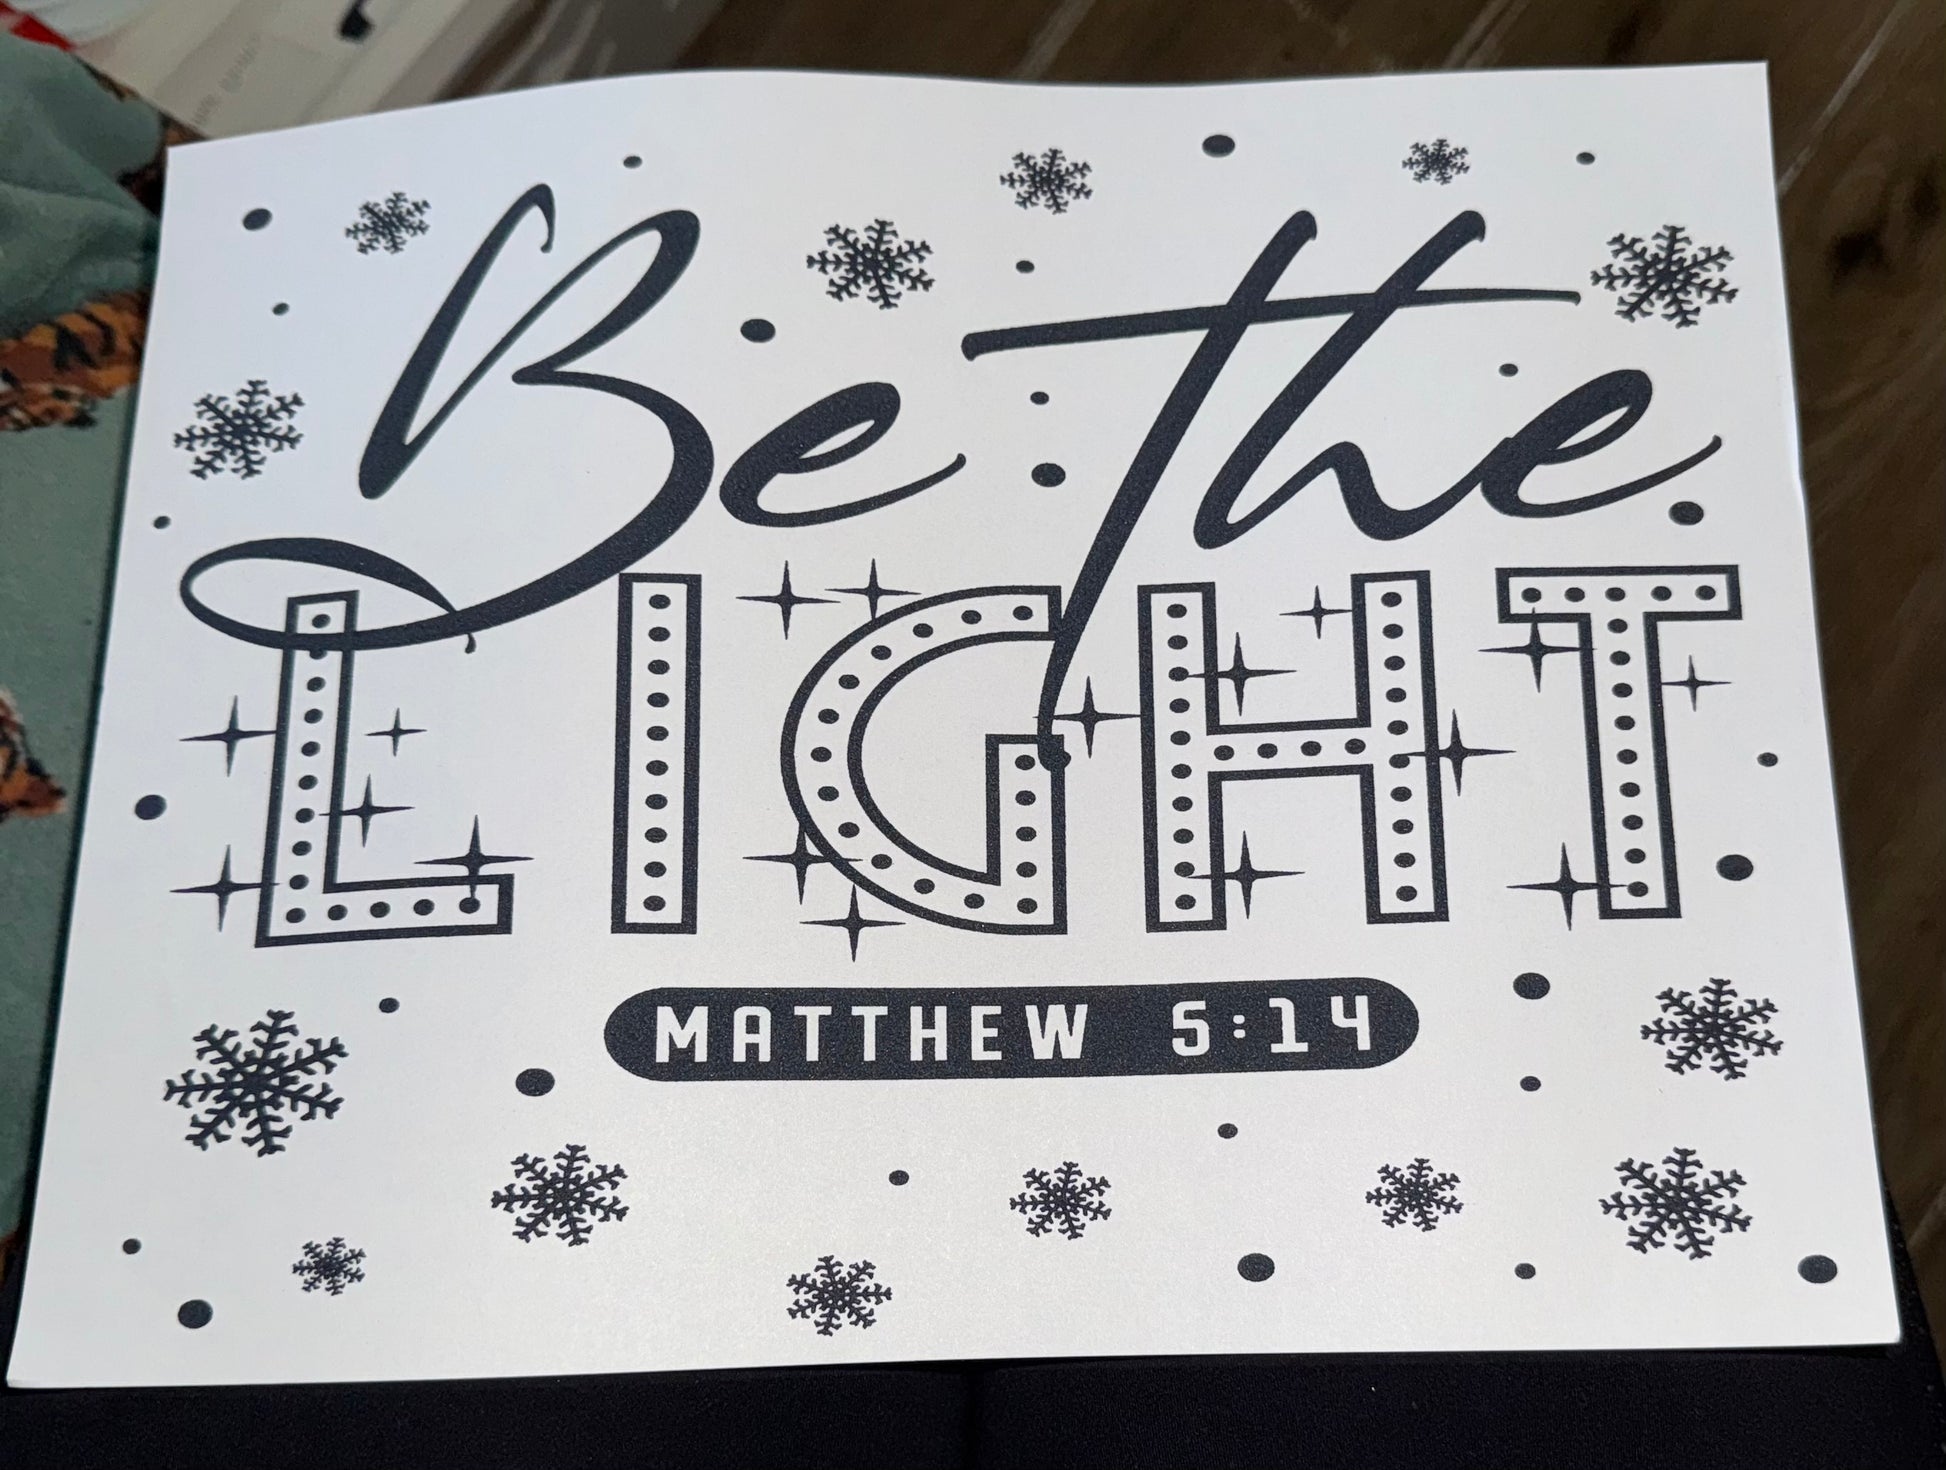 Be the
LIGHT
MATTHEW 5:14